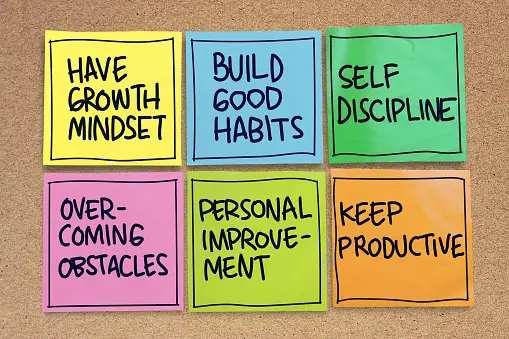 HAVE
GROWTH
MINDSET
BUILD
GOOD
HABITS
SELF
DISCIPLINE
OVER-
COMING
OBSTACLES
PERSONAL
IMPROVE-
MENT
KEEP
PRODUCTIVE